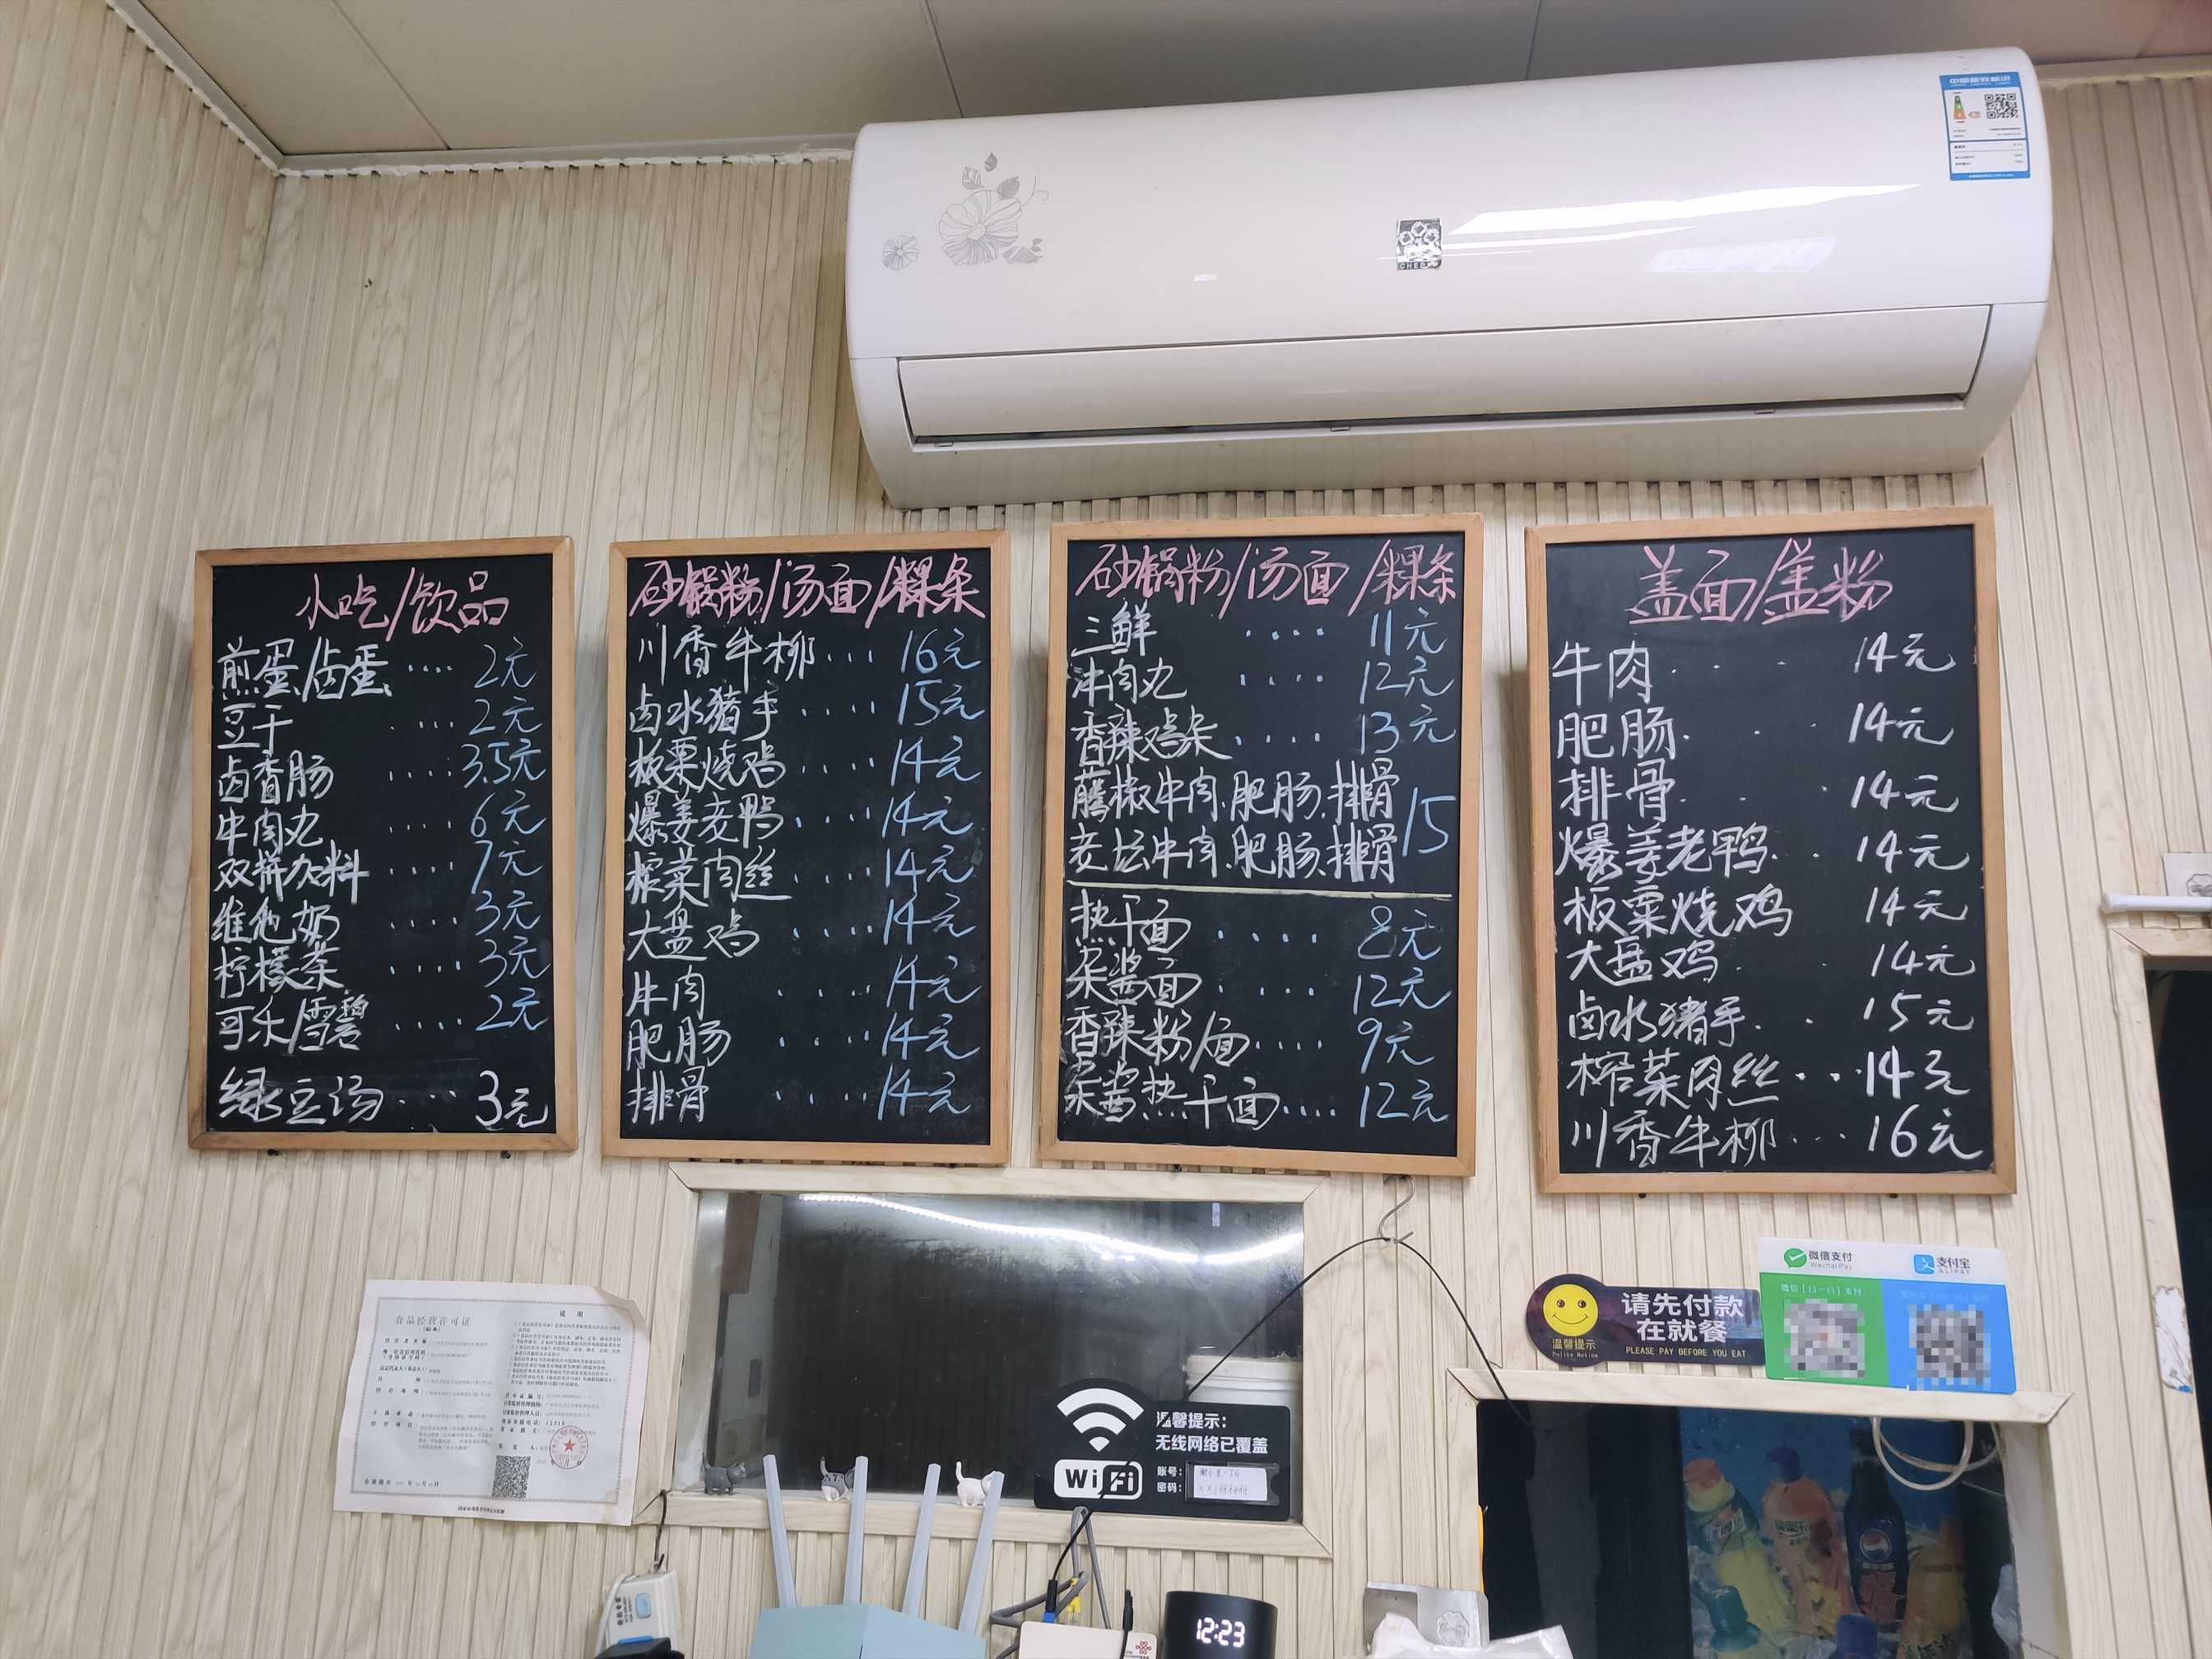 中国能效标识
小吃/饮品
煎蛋/卤蛋....2元
豆干....2元
卤香肠....3.5元
牛肉丸....6元
双拼加料....7元
维他奶....3元
柠檬茶....3元
可乐/雪碧....2元
绿豆汤....3元
砂锅粉/汤面/粿条
川香牛柳...16元
卤水猪手....15元
板栗烧鸡....14元
爆姜老鸭....14元
榨菜肉丝....14元
大盘鸡....14元
牛肉....14元
肥肠....14元
排骨....14元
砂锅粉/汤面/粿条
三鲜....11元
牛肉丸....12元
香辣鸡杂....13元
藤椒牛肉.肥肠.排骨
老坛牛肉.肥肠.排骨
15
热干面....8元
杂酱面....12元
香辣粉/面....9元
杂酱热干面....12元
盖面/盖粉
牛肉...14元
肥肠...14元
排骨...14元
爆姜老鸭...14元
板栗烧鸡 14元
大盘鸡..14元
卤水猪手...15元
榨菜肉丝...14元
川香牛柳...16元
食品经营许可证
(副本)
说 明
微信支付
Wechat Pay
支付宝
ALIPAY
微信[扫一扫]支付
请先付款
在就餐
温馨提示
Polite Notice
PLEASE PAY BEFORE YOU EAT
温馨提示:
无线网络已覆盖
WiFi
账号:
密码:
12:23